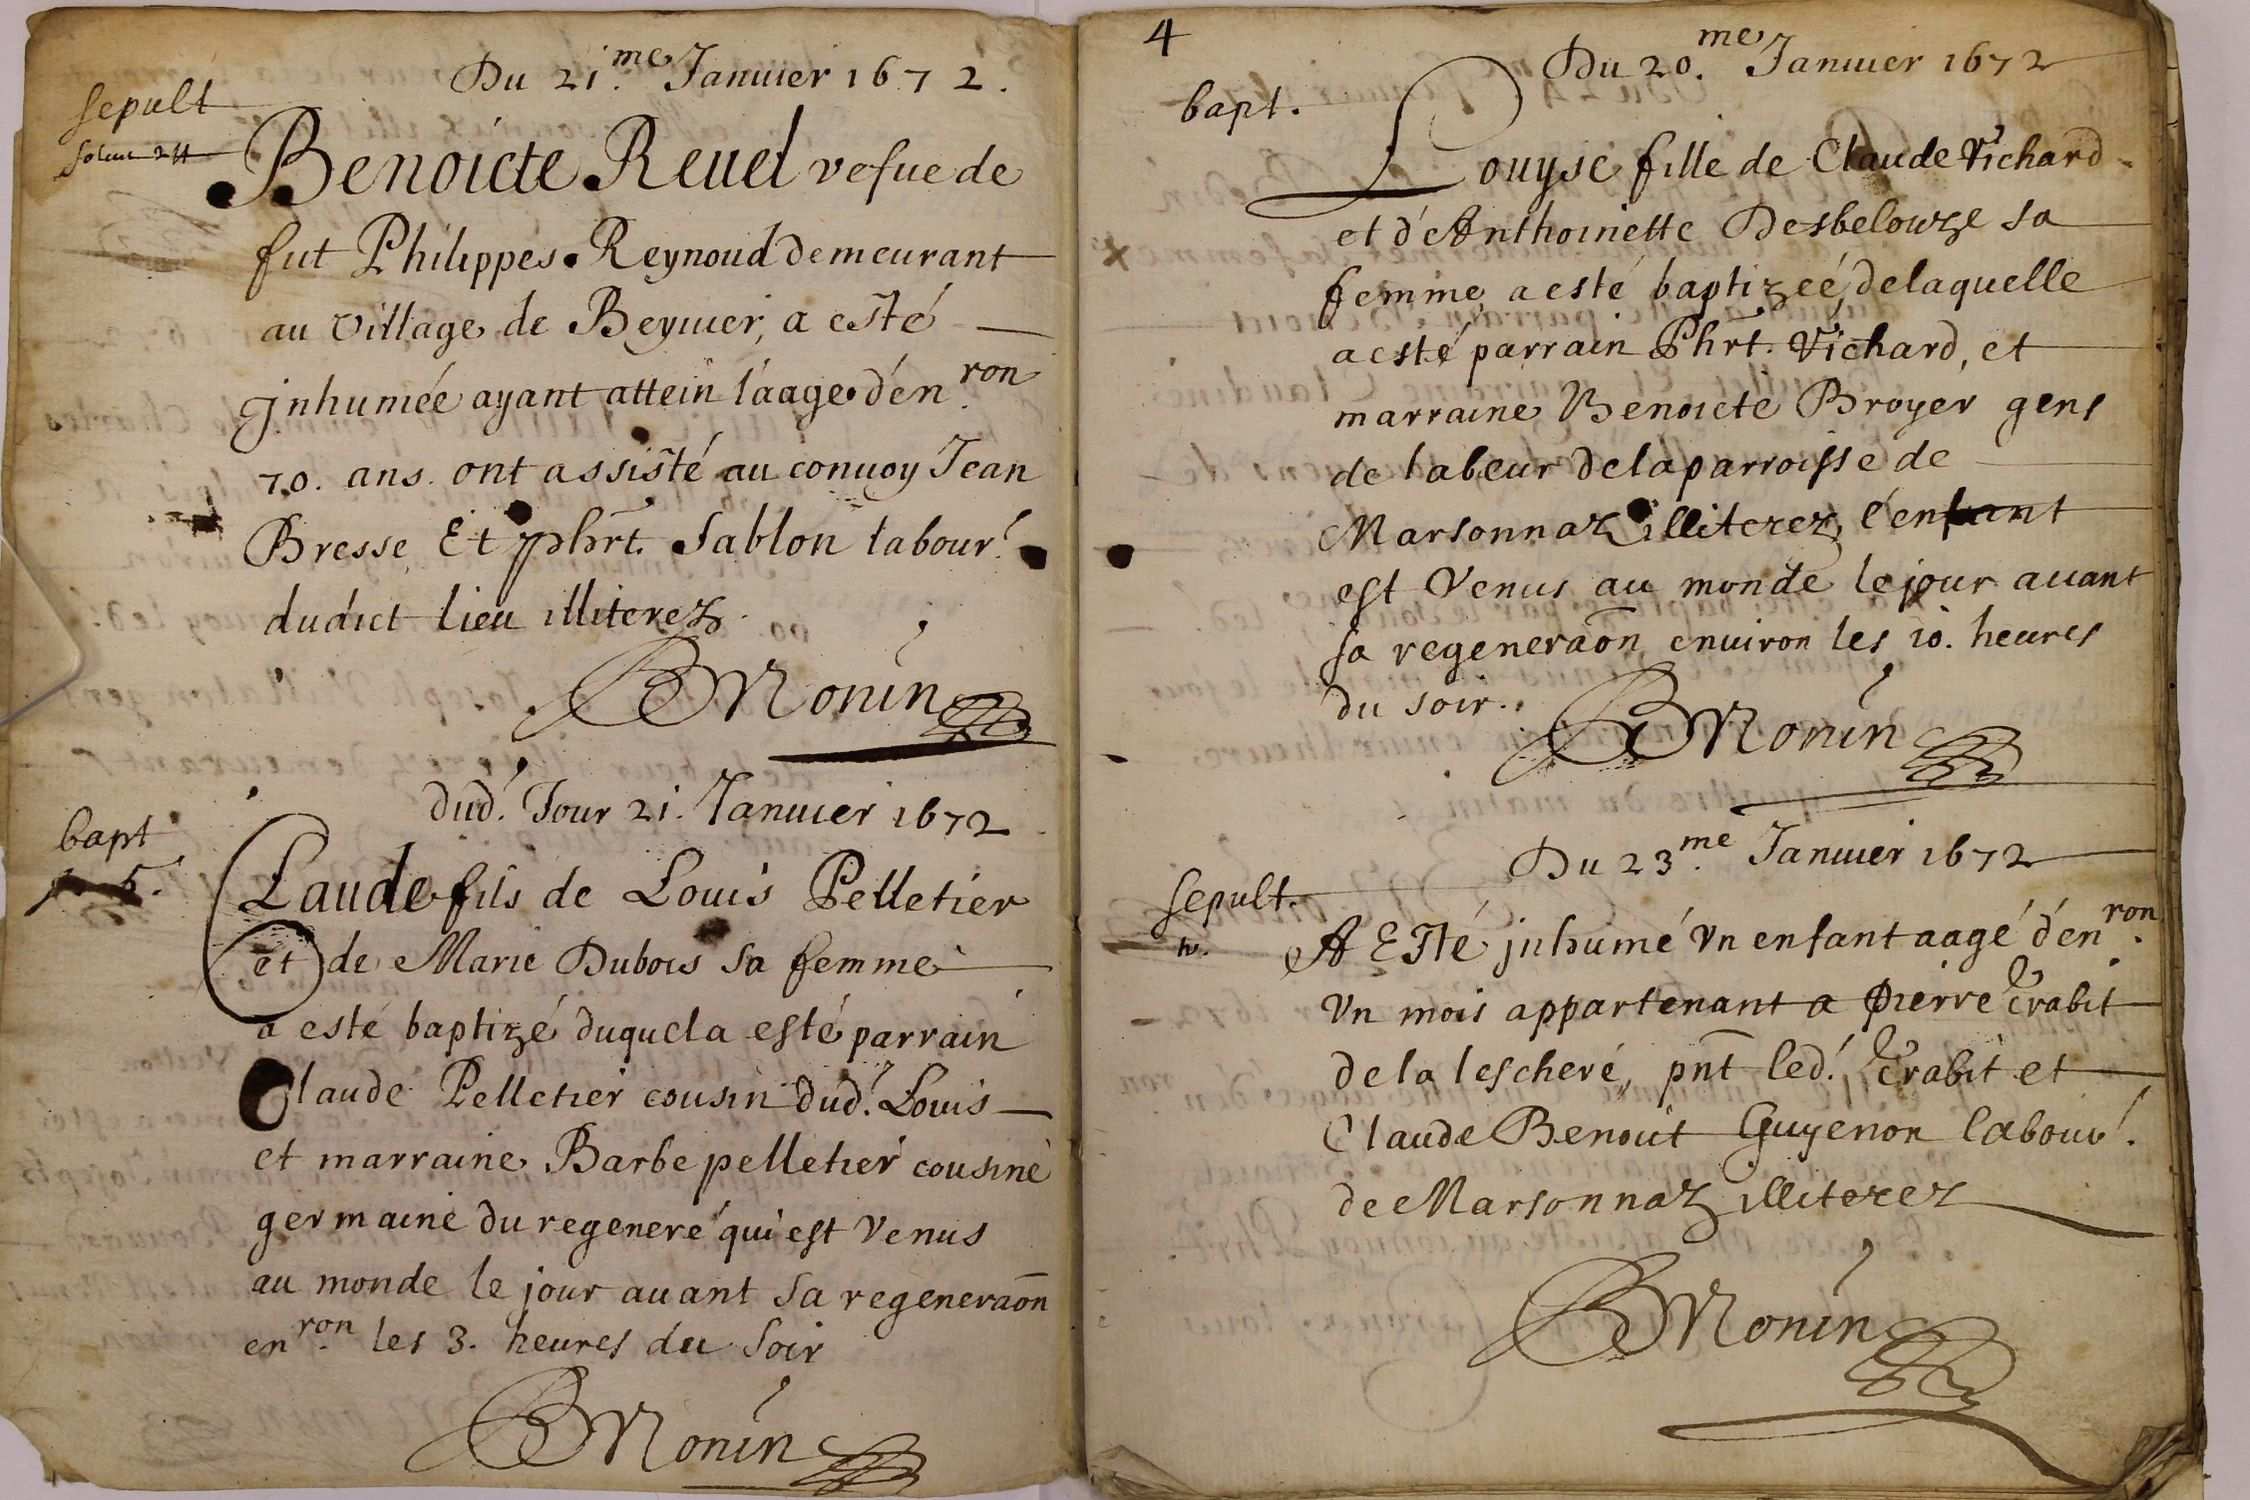 Du 21.me Januier 1672.
sepult
Benoicte Reuel vefue de
fut Philippes Reynoud demeurant
au village de Beyuier, a esté
jnhumée ayant attein l'aage d'en.ron
70. ans. ont assisté au conuoy Jean
Bresse Et phrt. Sablon labour.
dudict lieu illiterez.
BMonin
dud. Jour 21. Januier 1672
bapt
Claude fils de Louis Pelletier
et de Marie Dubois sa femme
a esté baptizé duquel a esté parrain
Claude Pelletier cousin dud. Louis
et marraine Barbe pelletier cousine
germaine du regeneré qui est venus
au monde le jour auant sa regeneraon
en.ron les 3. heures du soir
BMonin
4
Du 20.me Januier 1672
bapt.
Louyse fille de Claude Vichard
et d'Anthoinette Desbelouze sa
femme a esté baptizeé, delaquelle
a esté parrain Phrt. Vichard, et
marraine Benoicte Broyer gens
de labeur de la parroisse de
Marsonnaz illiterez, l'enfant
est venus au monde le jour auant
sa regeneraon enuiron les 10. heures
du soir.
BMonin
Du 23.me Januier 1672
sepult.
A Esté jnhumé vn enfant aagé d'en.ron
vn mois appartenant a pierre Trabit
de la lescheré, pnt led. Trabit et
Claude Benoit Guyenon labour.
de Marsonnaz illiterez
BMonin